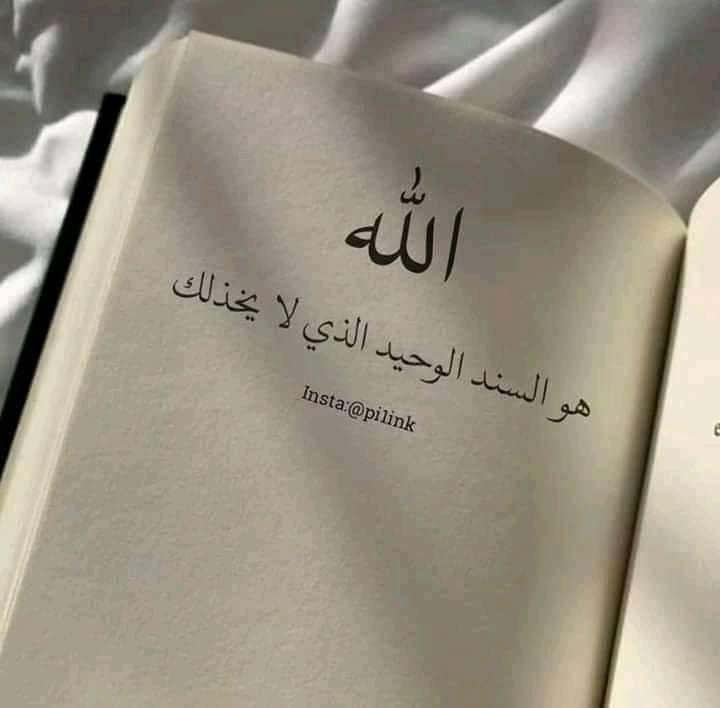 الله
هو السند الوحيد الذي لا يخذلك
Insta:@pilink